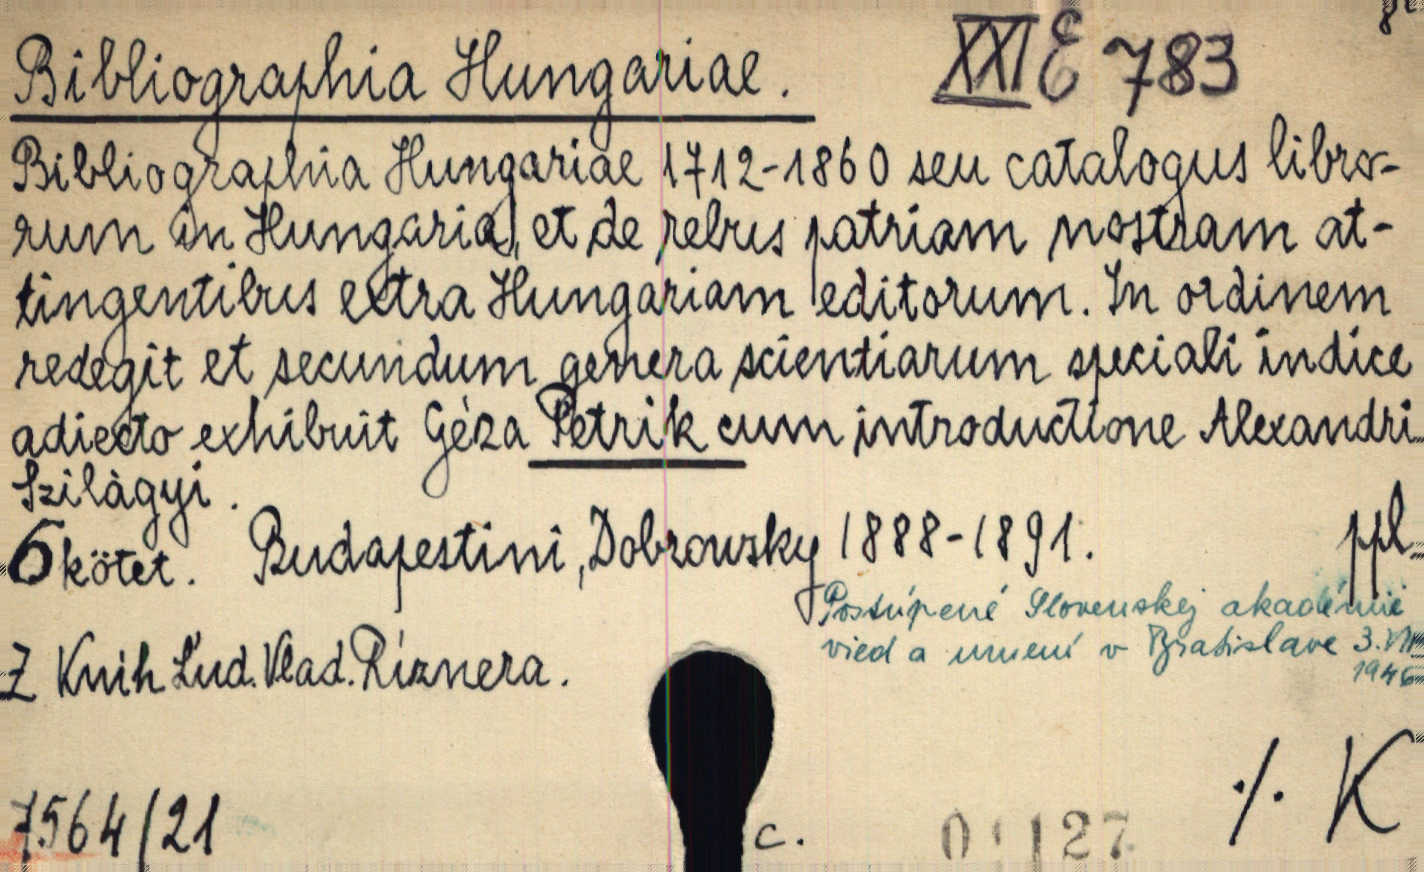 8°
Bibliographia Hungariae. XXI E 783
Bibliographia Hungariae 1712-1860 seu catalogus libro-
rum in Hungaria, et de rebus patriam nostram at-
tingentibus extra Hungariam editorum. In ordinem
redegit et secundum genera scientiarum speciali indice
adiecto exhibuit Géza Petrik cum introductione Alexandri
Szilàgyi.
6 kötet. Budapestini, Dobrowsky 1888-1891. ppl.
Postúpené Slovenskej akadémii
vied a umení v Bratislave 3.VII
Z Kníh Ľud. Vlad. Ríznera.
7564/21
c.
127
·/. K